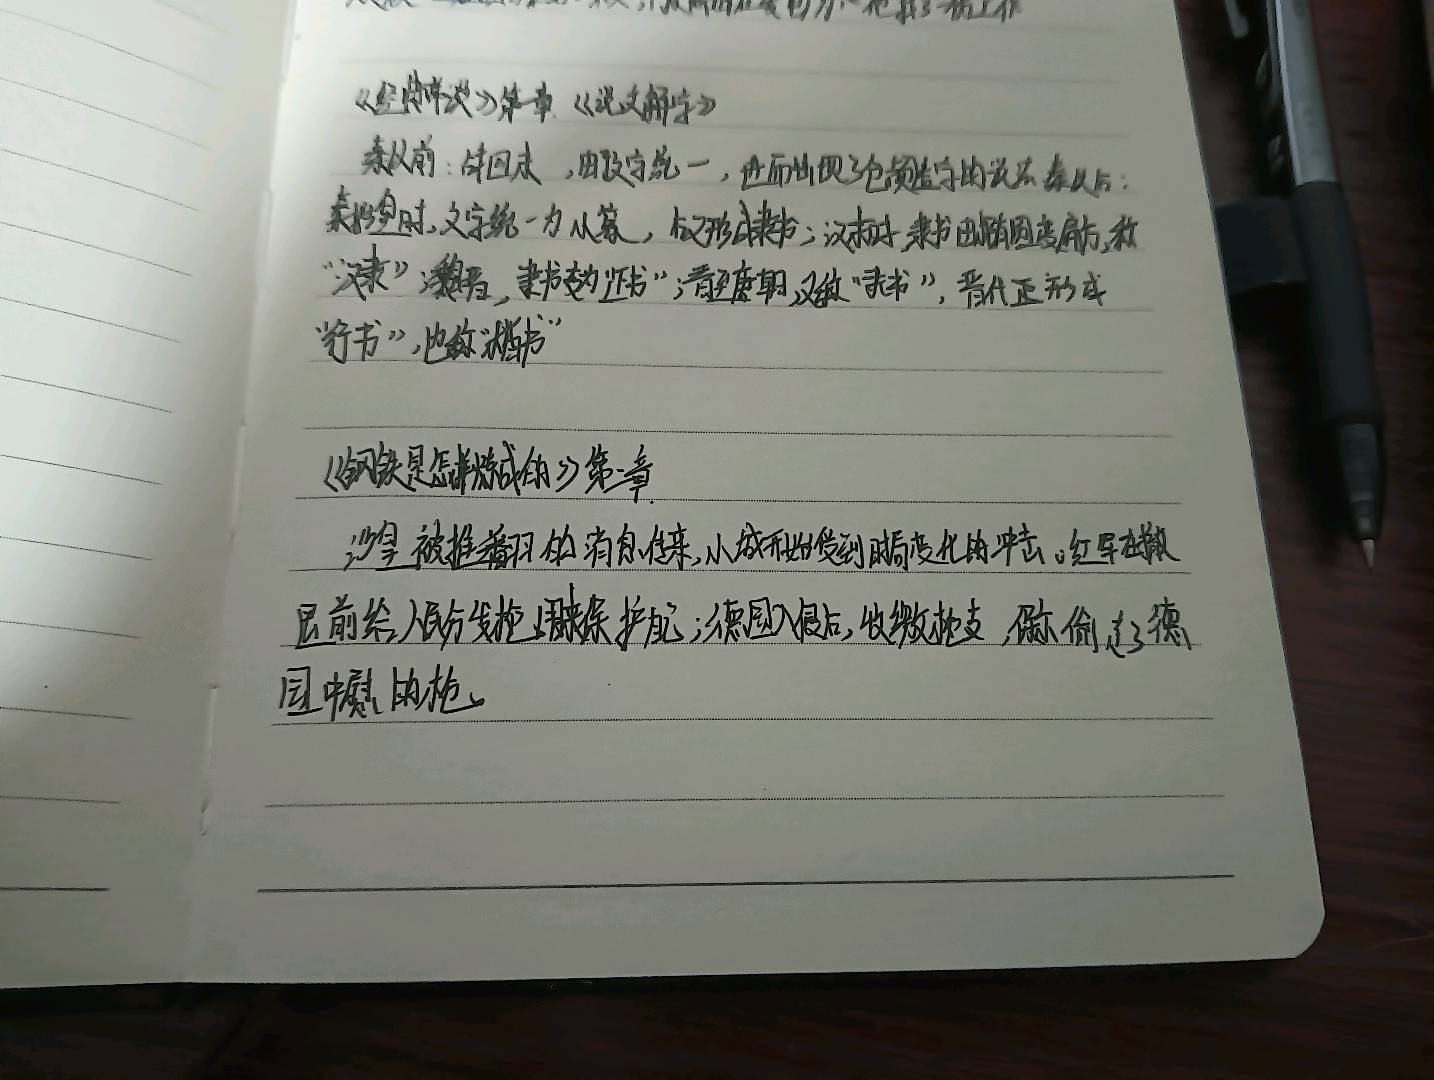 《经典常谈》第一章《说文解字》
秦以前：战国末，由改字统一，进而出现了仓颉造字的说法 秦以后：
秦始皇时，文字统一为小篆，后又形成隶书；汉末时，隶书由椭圆变扁方，称
“汉隶”；魏晋，隶书变为“正书”；晋至唐朝，又称“隶书”，晋代正形成
“行书”，也称“楷书”
《钢铁是怎样炼成的》第一章
沙皇被推翻的消息传来，小城开始受到时局变化的冲击。红军在撤
民前给人民分发枪用来保护自己；德国入侵后，收缴枪支，保尔偷走了德
国中尉的枪。